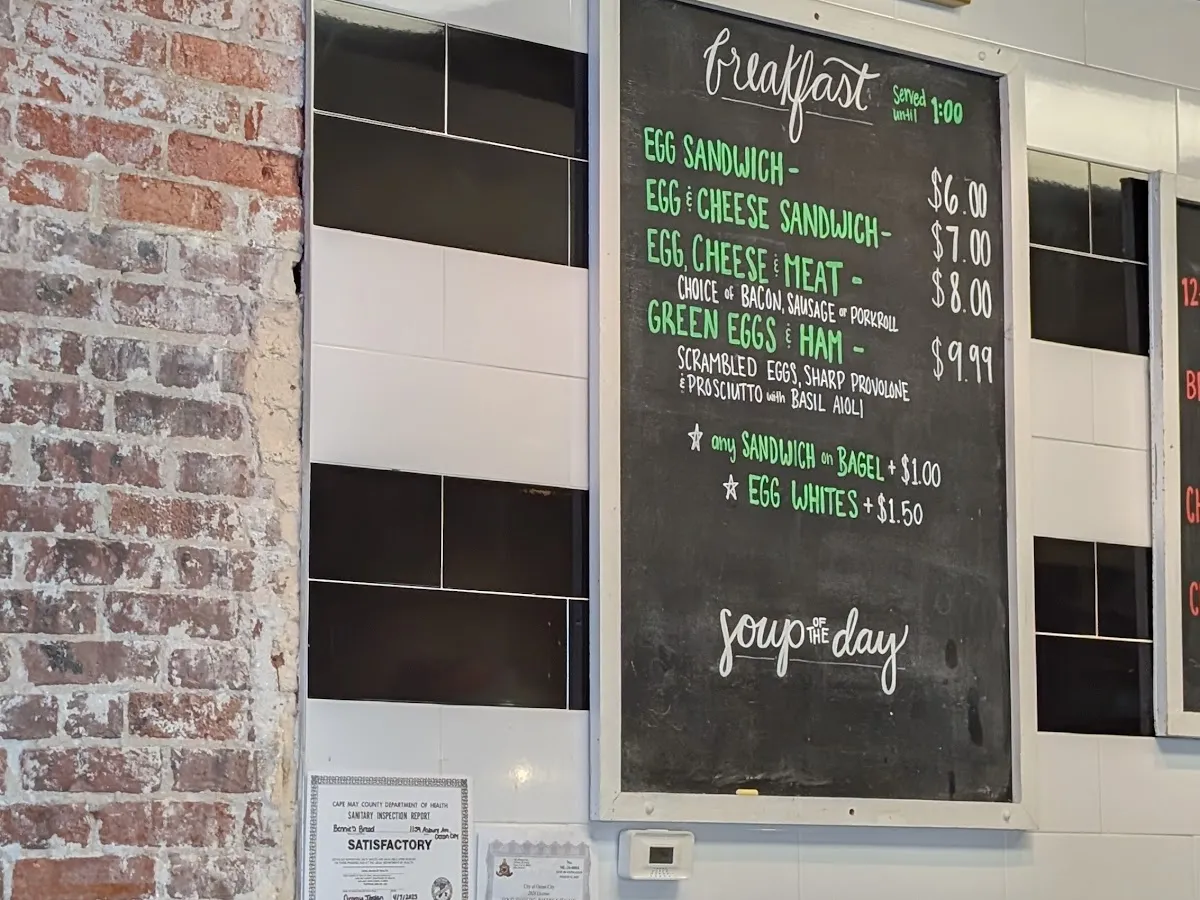 breakfast
Served until 1:00
EGG SANDWICH - $6.00
EGG & CHEESE SANDWICH - $7.00
EGG, CHEESE & MEAT - $8.00
CHOICE of BACON, SAUSAGE or PORKROLL
GREEN EGGS & HAM - $9.99
SCRAMBLED EGGS, SHARP PROVOLONE
& PROSCIUTTO with BASIL AIOLI
☆ any SANDWICH on BAGEL + $1.00
☆ EGG WHITES + $1.50
soup OF THE day
12
B
CH
C
CAPE MAY COUNTY DEPARTMENT OF HEALTH
SANITARY INSPECTION REPORT
Bennie's Bread 1139 Asbury Ave
Ocean City
SATISFACTORY
4/7/2023
City of Ocean City